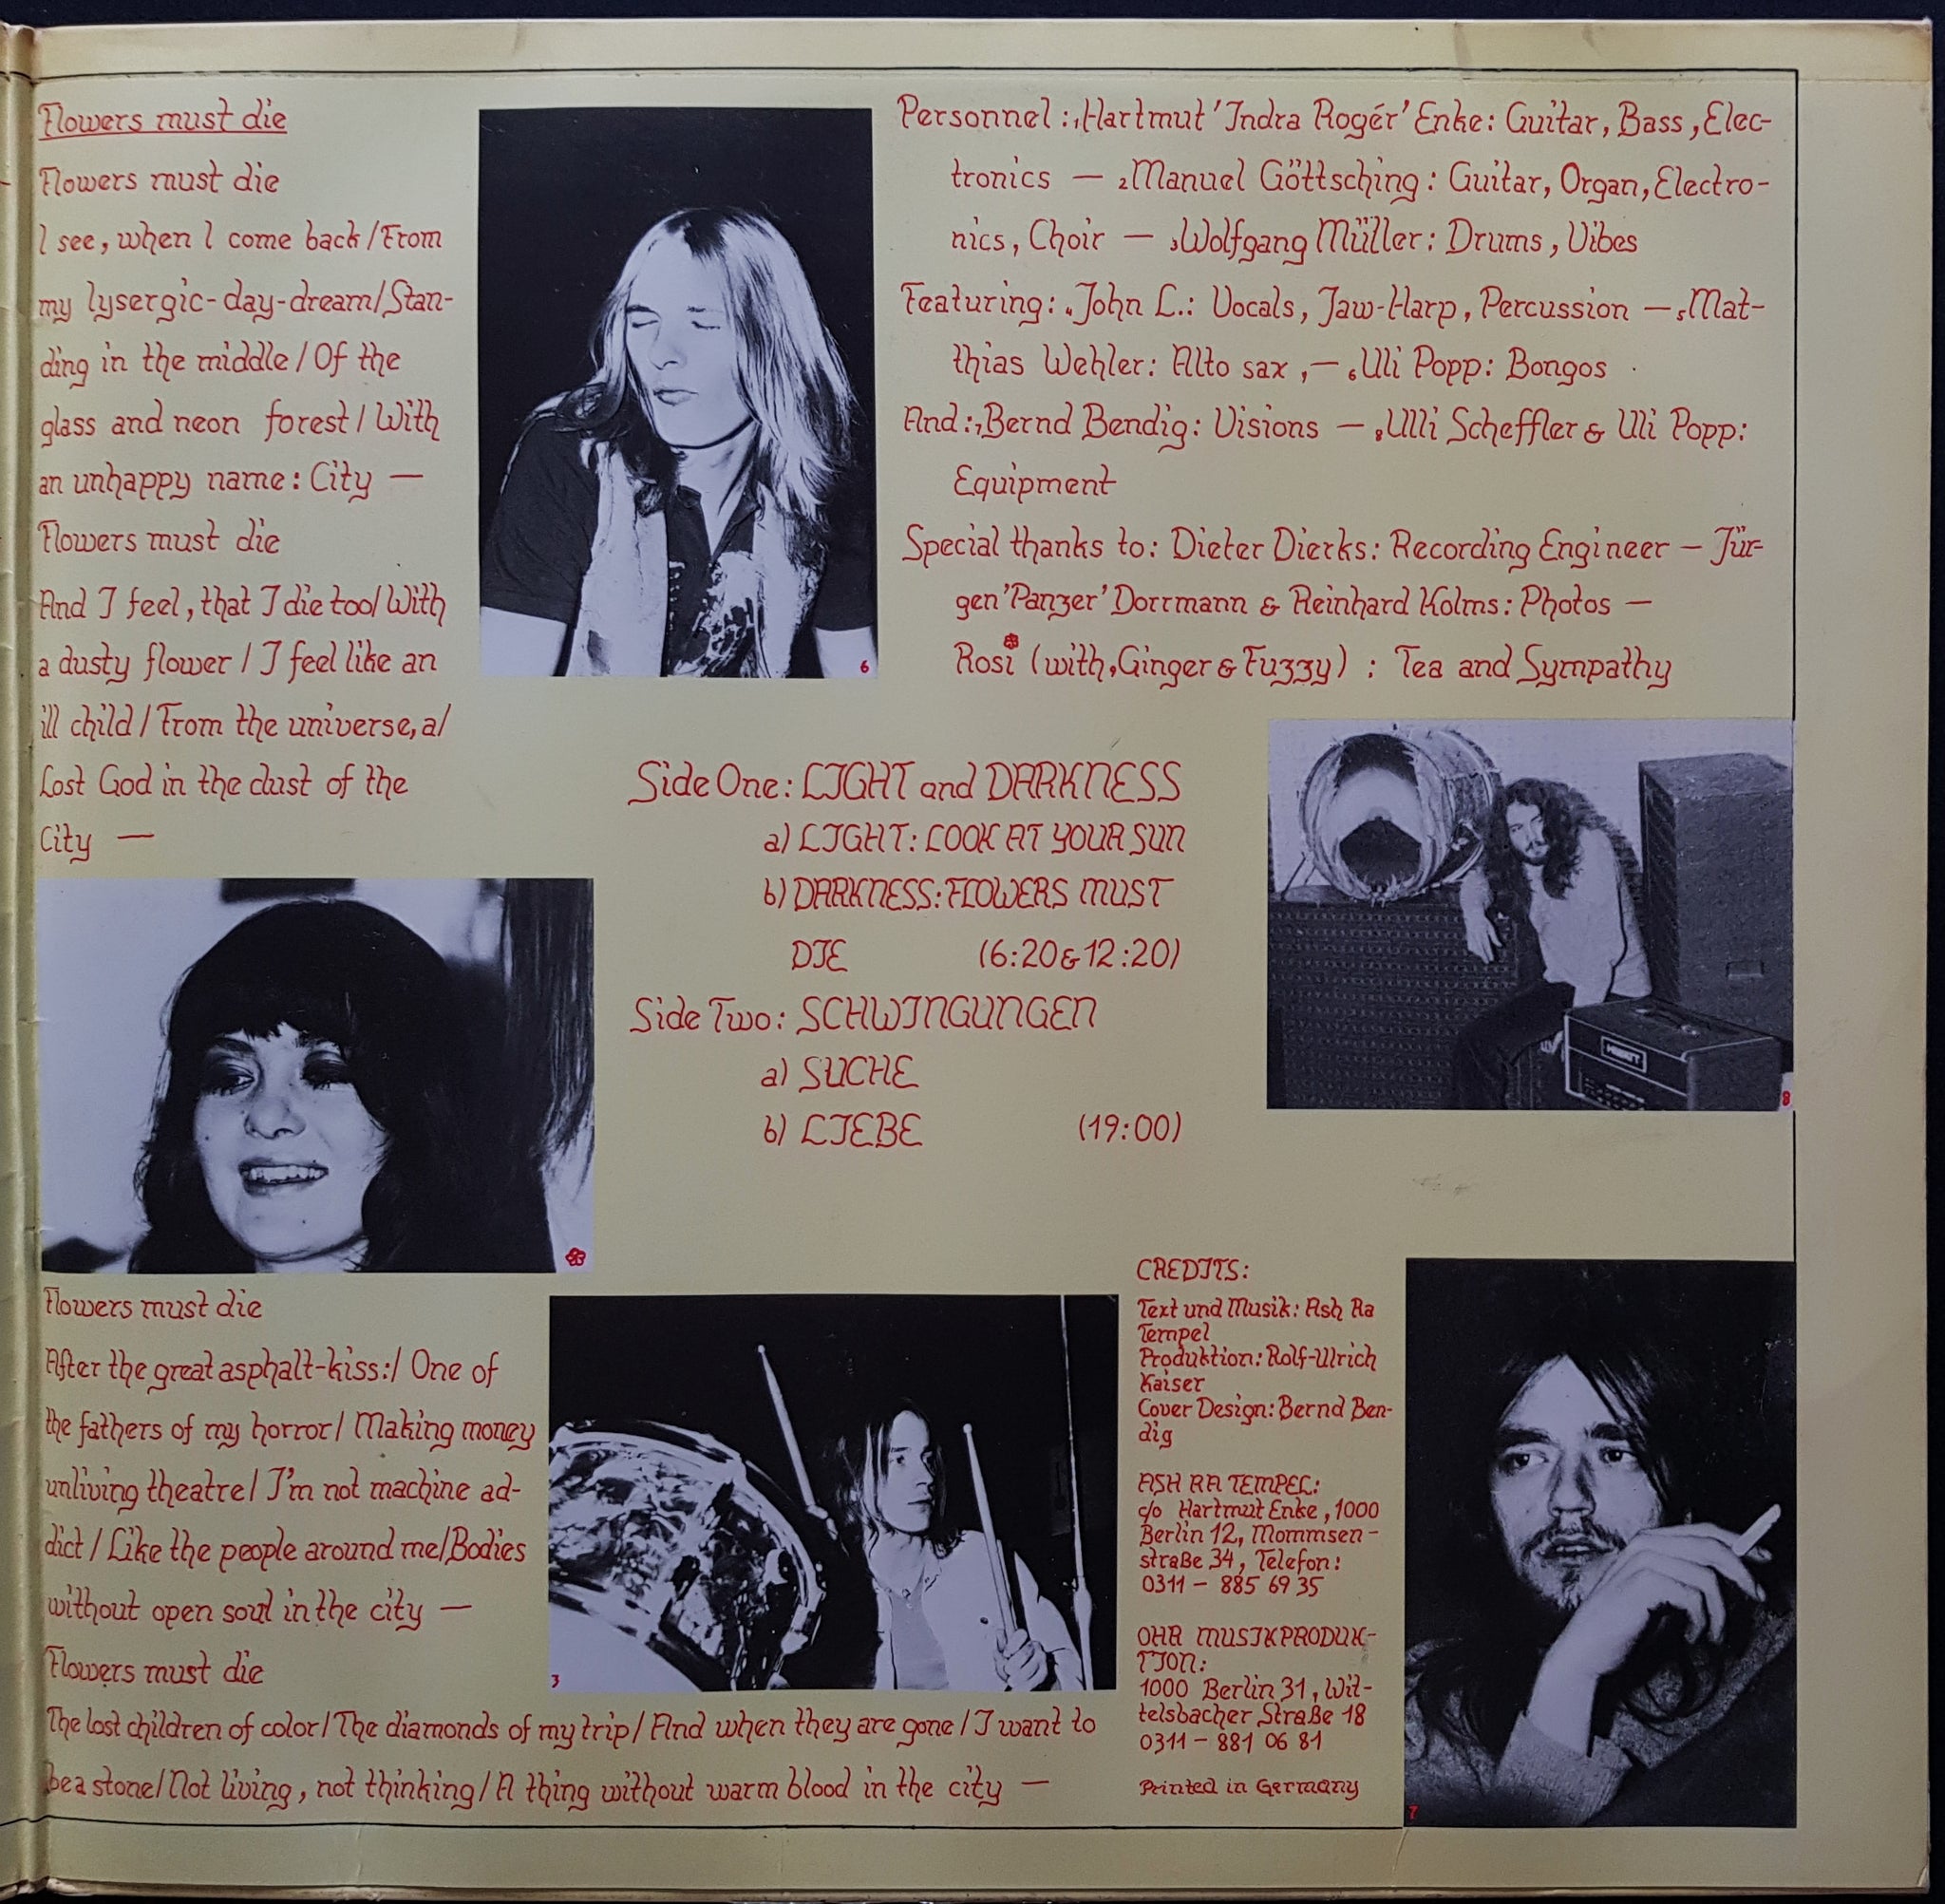 Flowers must die
Flowers must die
I see, when I come back / From
my lysergic-day-dream / Stan-
ding in the middle / Of the
glass and neon forest / With
an unhappy name: City —
Flowers must die
And I feel, that I die too / With
a dusty flower / I feel like an
ill child / From the universe, a /
Lost God in the dust of the
City —
6
Personnel : ₁Hartmut 'Indra Rogér' Enke: Guitar, Bass, Elec-
tronics — ₂Manuel Göttsching: Guitar, Organ, Electro-
nics, Choir — ₃Wolfgang Müller: Drums, Vibes
Featuring: ₄John L.: Vocals, Jaw-Harp, Percussion — ₅Mat-
thias Wehler: Alto sax, — ₆Uli Popp: Bongos
And: ₇Bernd Bendig: Visions — ₈Ulli Scheffler & Uli Popp:
Equipment
Special thanks to: Dieter Dierks: Recording Engineer — Jür-
gen 'Panzer' Dorrmann & Reinhard Kolms: Photos —
Rosi (with, Ginger & Fuzzy) : Tea and Sympathy
Side One: LIGHT and DARKNESS
a) LIGHT: LOOK AT YOUR SUN
b) DARKNESS: FLOWERS MUST
DIE (6:20 & 12:20)
Side Two: SCHWINGUNGEN
a) SUCHE
b) LIEBE (19:00)
8
Flowers must die
After the great asphalt-kiss: / One of
the fathers of my horror / Making money
unliving theatre / I'm not machine ad-
dict / Like the people around me / Bodies
without open soul in the city —
Flowers must die
The lost children of color / The diamonds of my trip / And when they are gone / I want to
be a stone / Not living, not thinking / A thing without warm blood in the city —
3
CREDITS:
Text und Musik: Ash Ra
Tempel
Produktion: Rolf-Ulrich
Kaiser
Cover Design: Bernd Ben-
dig
ASH RA TEMPEL:
c/o Hartmut Enke, 1000
Berlin 12, Mommsen-
straße 34, Telefon:
0311 — 885 69 35
OHR MUSIKPRODUK-
TION:
1000 Berlin 31, Wit-
telsbacher Straße 18
0311 — 881 06 81
Printed in Germany
7